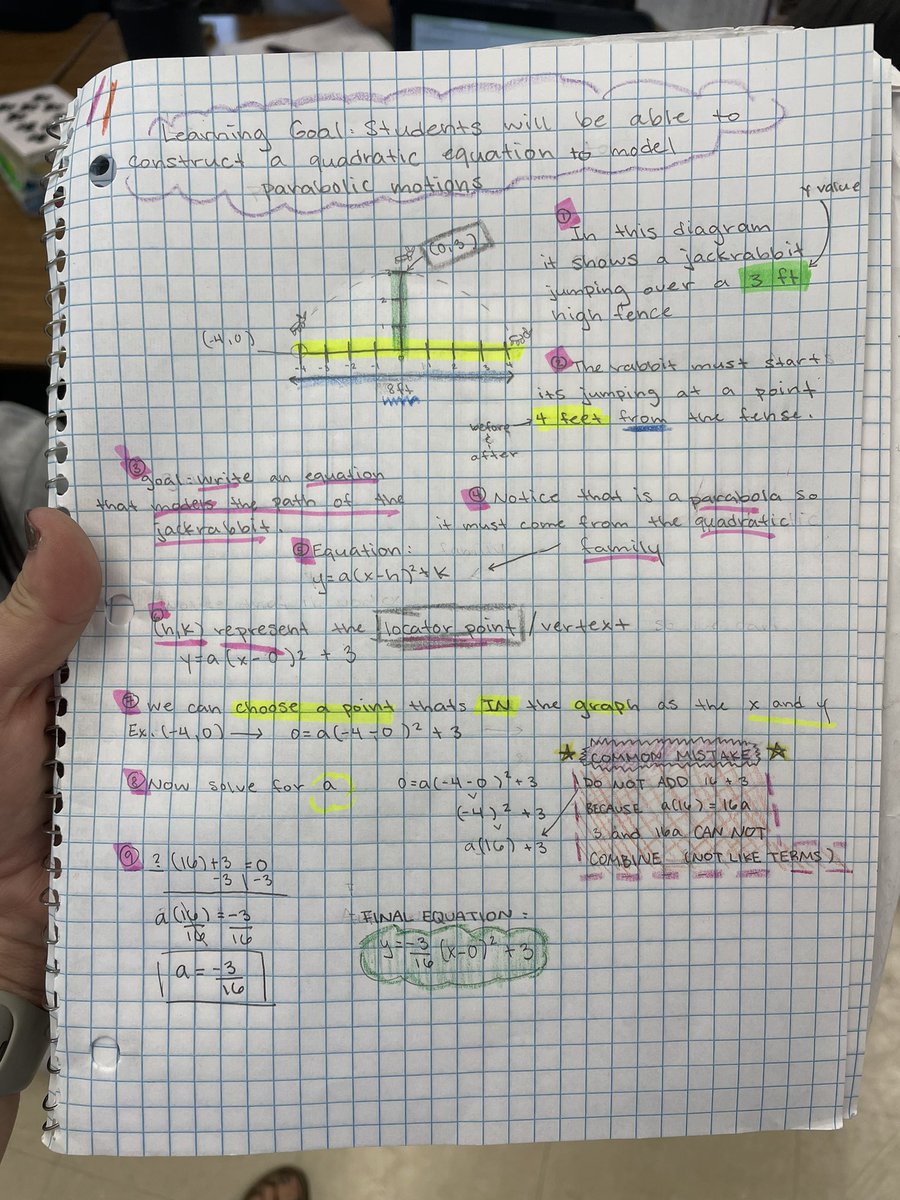 11
Learning Goal: Students will be able to
construct a quadratic equation to model
parabolic motions
Y value
① In this diagram
it shows a jackrabbit
jumping over a 3 ft
high fence
(0,3)
3
2
1
(-4,0)
-4 -3 -2 -1 0 1 2 3 4
8ft
② The rabbit must start
its jumping at a point
4 feet from the fense.
before
&
after
③ goal: write an equation
that models the path of the
jackrabbit.
④ Notice that is a parabola so
it must come from the quadratic
family
⑤ Equation:
y=a(x-h)²+k
⑥
(h,k) represent the locator point/vertext
y=a(x-0)² + 3
⑦ we can choose a point thats IN the graph as the x and y
Ex. (-4,0) → 0=a(-4-0)² + 3
⑧ Now solve for a
0=a(-4-0)²+3
(-4)² +3
a(16) +3
COMMON MISTAKE
DO NOT ADD 16 + 3
BECAUSE a(16) = 16a
3 and 16a CAN NOT
COMBINE (NOT LIKE TERMS)
⑨ ? (16)+3 = 0
-3 | -3
a(16) = -3
16 16
a = -3
16
FINAL EQUATION:
y = -3/16 (x-0)² + 3